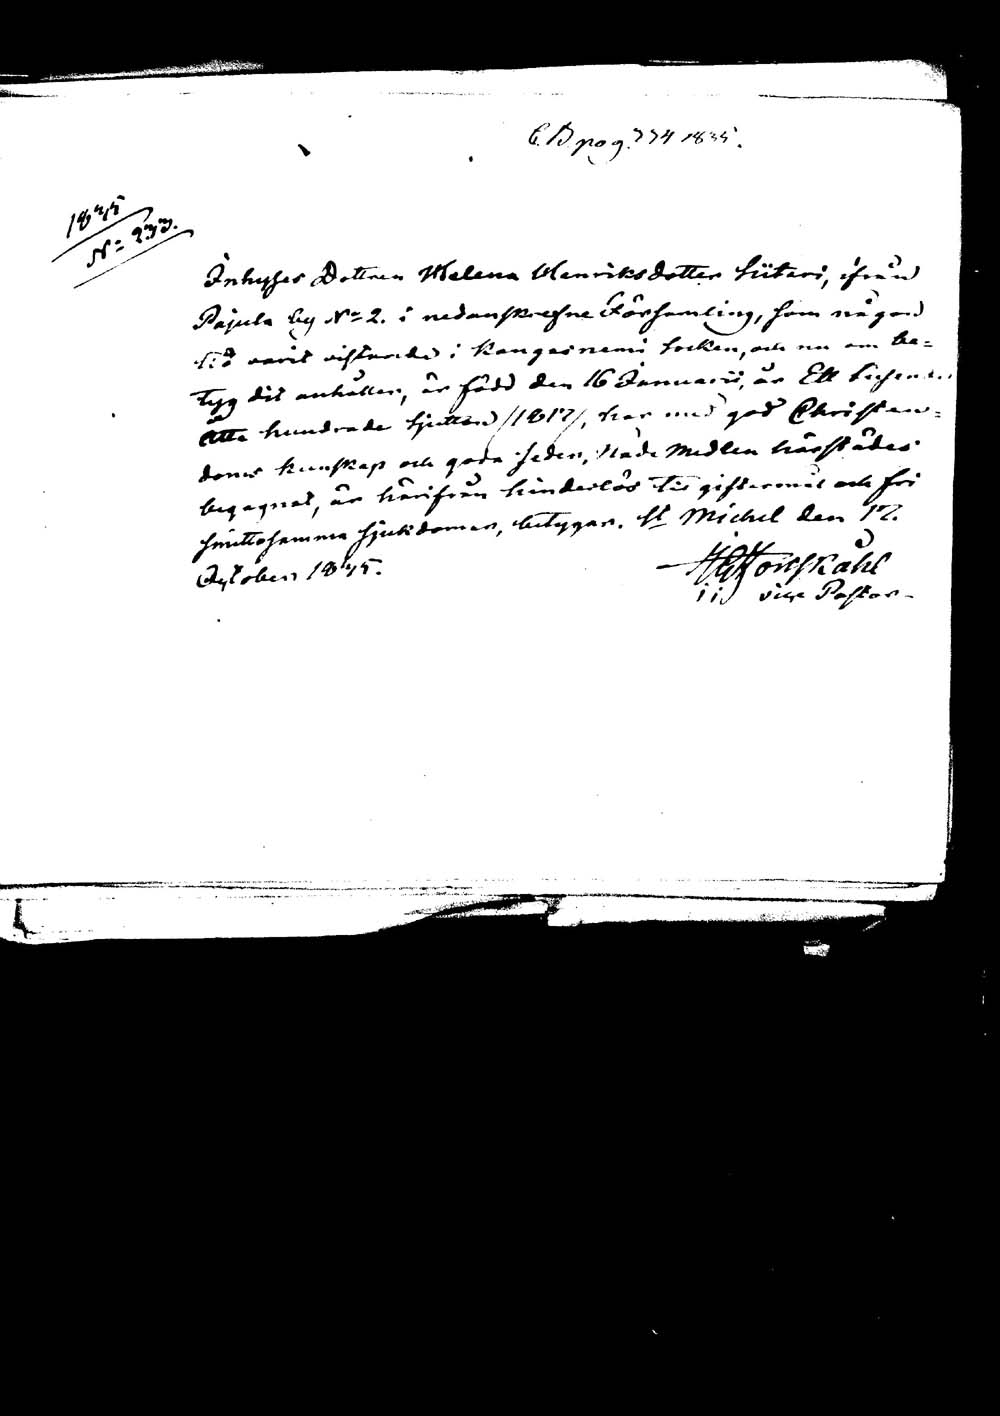 C.B. pag. 774 1835.
1845
N= 233.
Inhyses Dottren Helena Henriksdotter Siitari, ifrån
Pajula by N= 2. i nedanskrefne Församling, som någon
tid varit vistande i Kangasniemi Socken, och nu om be=
tyg dit anhåller, är född den 16 Januarii, år Ett tusende
åtta hundrade sjutton /1817/, har med god Christen=
doms kunskap och goda seder, Nåde Medlen härstädes
begagnat, är härifrån hinderlös till giftermål och fri
smittosamma sjukdomar, betygar. St Michel den 17.
October 1845.
vice Pastor